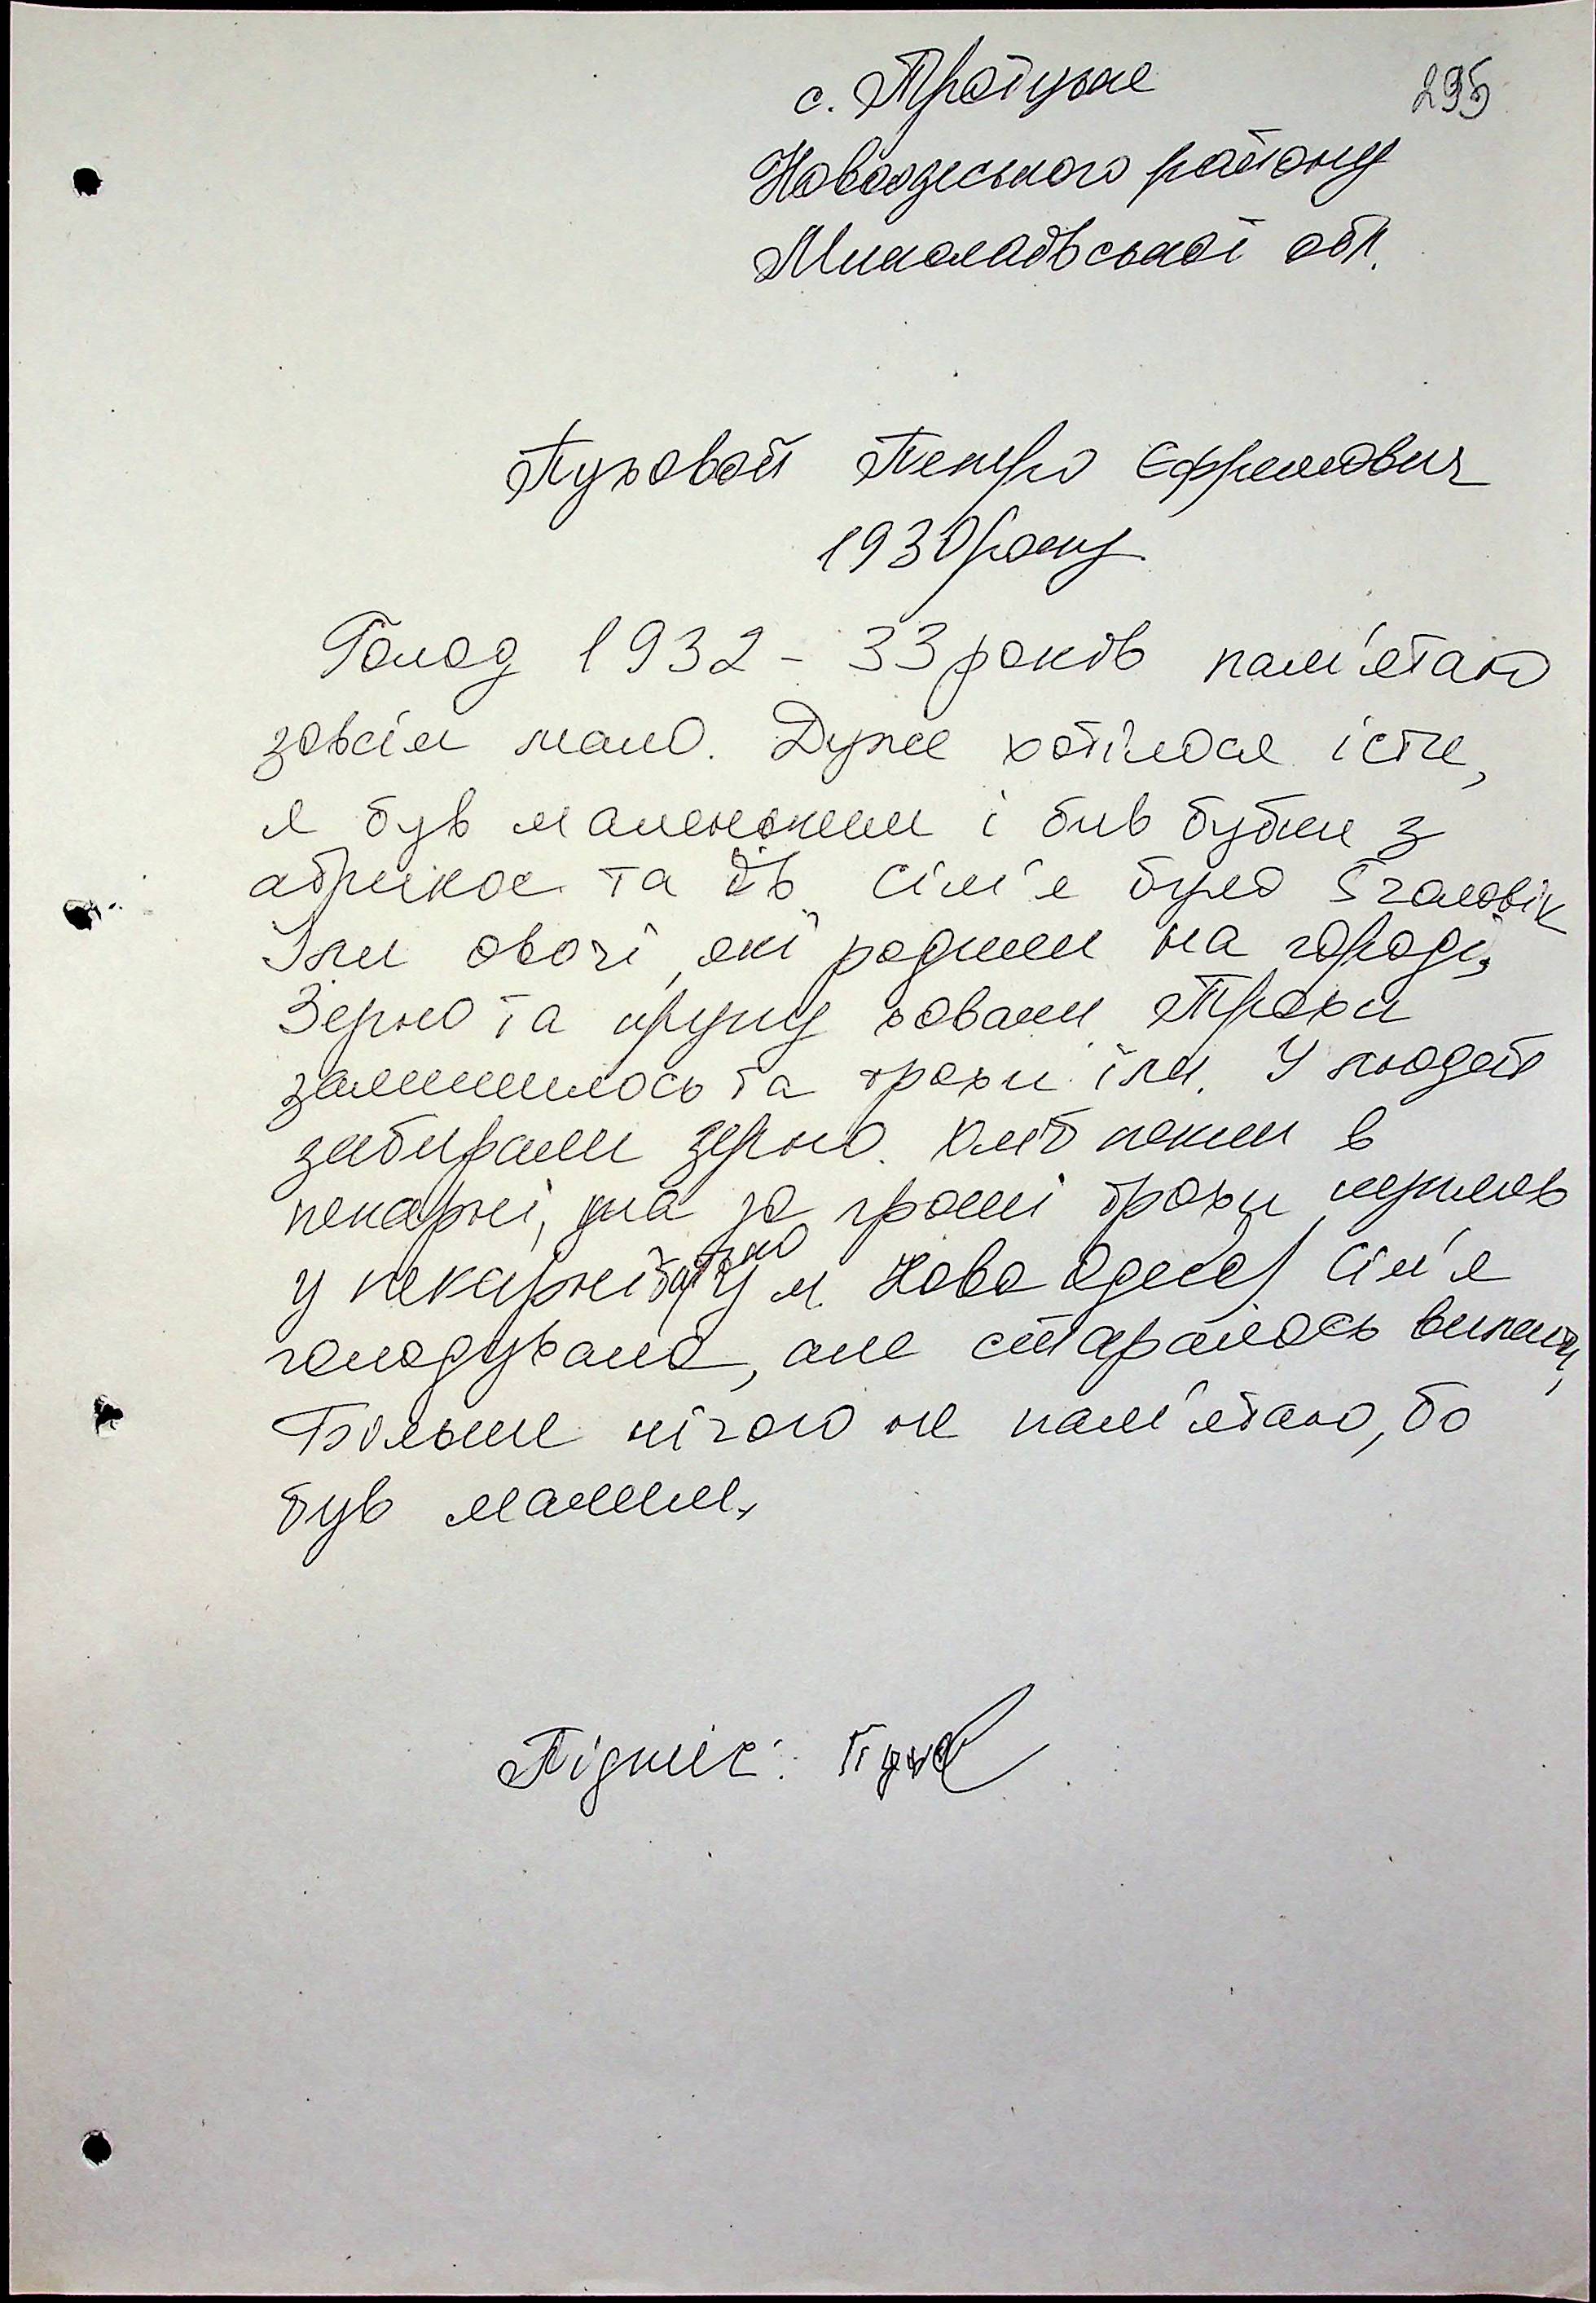 с. Троїцьке
295
Новоодеського району
Миколаївської обл.
Пуховой Петро Єфремович
1930 року
Голод 1932 - 33 років пам'ятаю
зовсім мало. Дуже хотілося істи,
я був маленьким і бив бубки з
абрикос та їв. Сім'я була 5 чоловік
Їли овочі, які родили на городі,
Зерно та крупу ховали Трохи
залишилось та трохи їли. У людей
забирали зерно. Хліб пекли в
пекарні, за гроші трохи купляв
у пекарні батько у м. Нова Одеса, Сім'я
голодувала, але старалось вижити,
Більше нічого не пам'ятаю, бо
був малим.
Підпис: